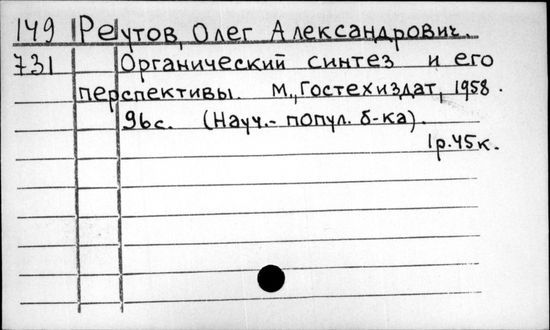 149 Реутов, Олег Александрович.
731 Органический синтез и его
перспективы. М., Гостехиздат, 1958.
96с. (Науч.- попул. б-ка).
1р.45к.